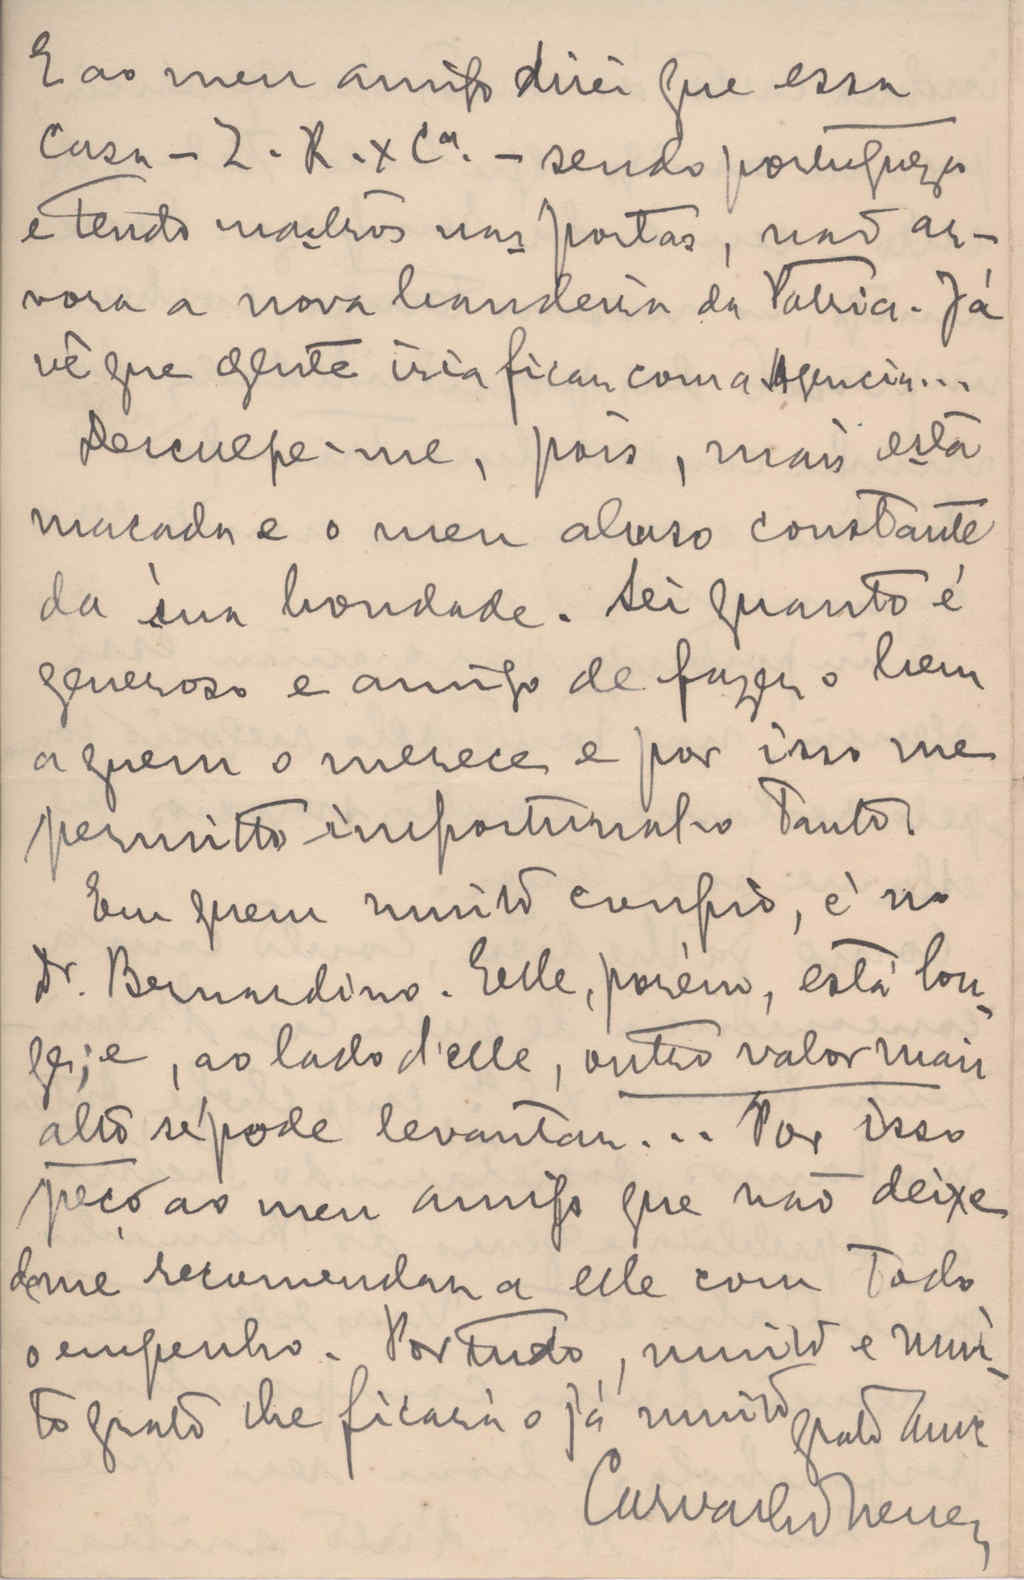 E ao meu amigo direi que essa
Casa – Z. R. & Cª. – sendo portugueza
e tendo mastros nas portas, não ar-
vora a nova bandeira da Patria. Já
vê que gente iria ficar com a Agencia...
Desculpe-me, pois, mais esta
macada e o meu abuso constante
da sua bondade. Sei quanto é
generoso e amigo de fazer o bem
a quem o merece e por isso me
permitto importunal-o tanto.
Em quem muito confio, é no
Dr. Bernardino. Elle, porém, está lon-
ge; e, ao lado d'elle, outro valor mais
alto se pode levantar... Por isso
peço ao meu amigo que não deixe
de me recomendar a elle com todo
o empenho. Por tudo, muito e mui-
to grato lhe ficará o já muito grato Amº
Carvalho Neves